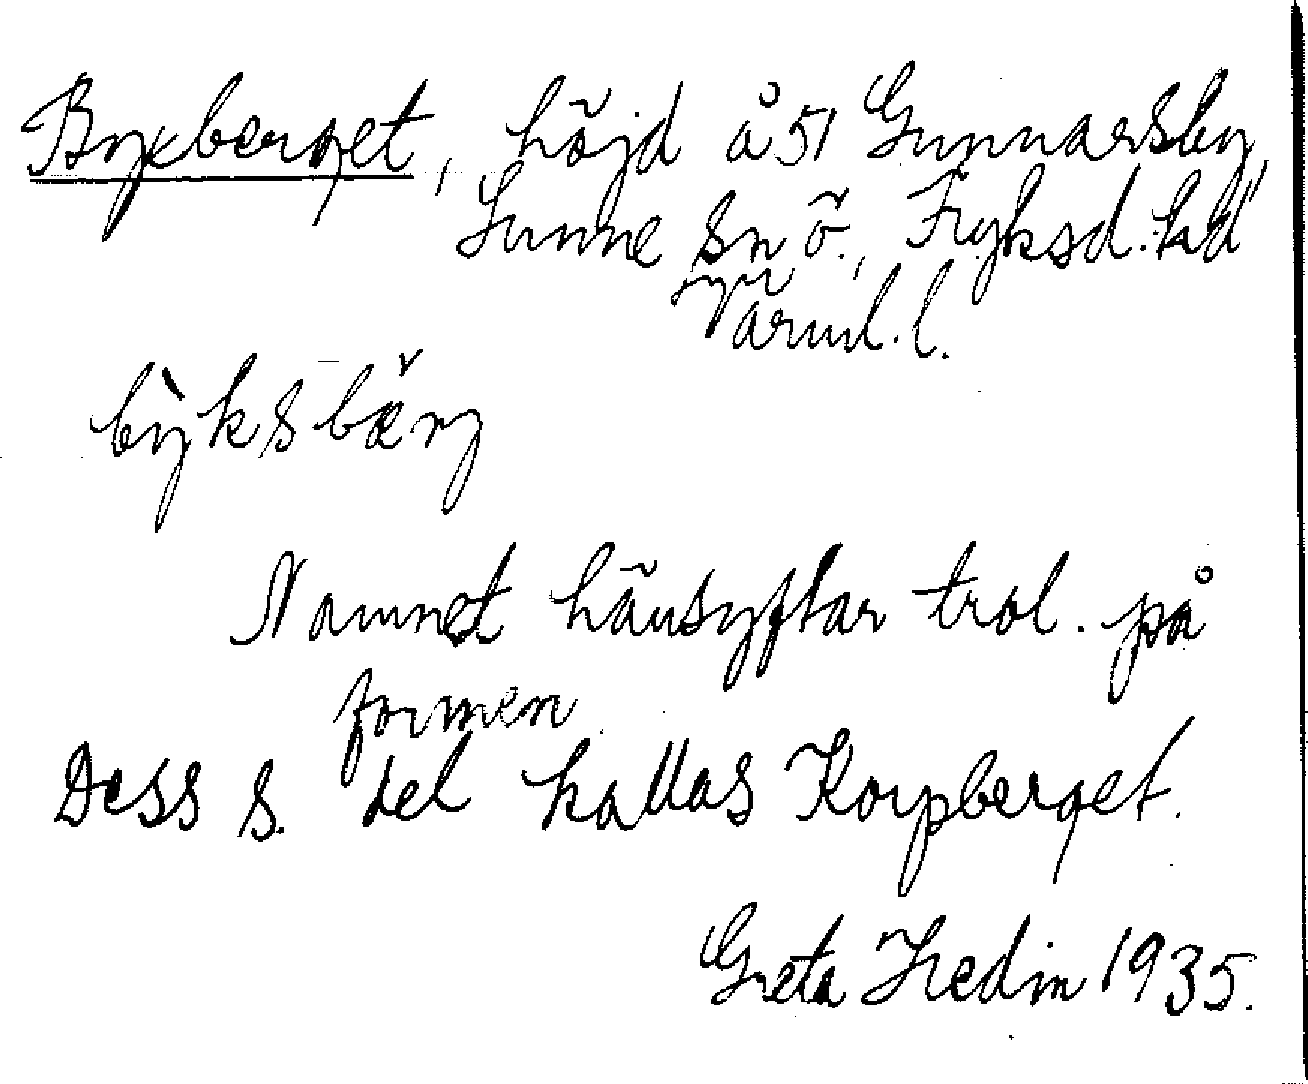 Byxberget, höjd å 51 Gunnarsby,
Sunne sn ö., Fryksd. hd
Värml. l.
bỳksbæ̌rj
Namnet hänsyftar trol. på
formen.
Dess s. del kallas Korpberget.
Greta Hedin 1935.